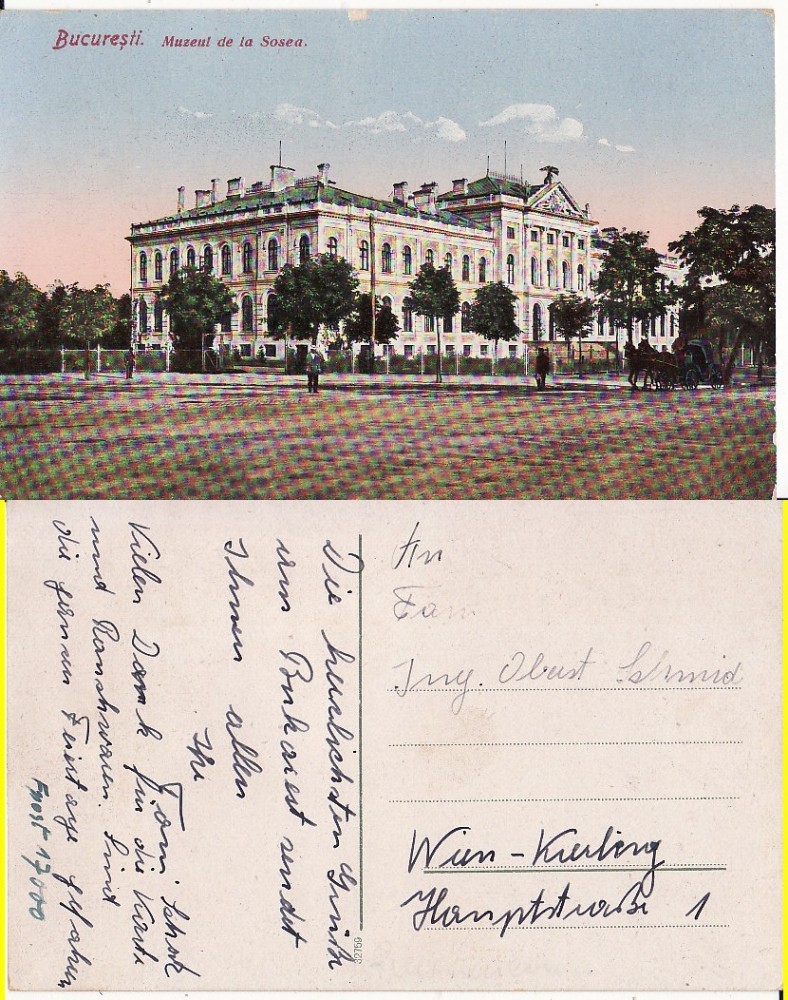 București. Muzeul de la Sosea.
Die herzlichsten Grüße
aus Bukarest sendet
Ihnen allen
Ihr
Vielen Dank für die Karte
und Rauchwaren. Sind
die fernen Feiertage
Fpost 17000
32759
An
Fam
Ing. Obest Schmid
Wien - Kierling
Hauptstraße 1